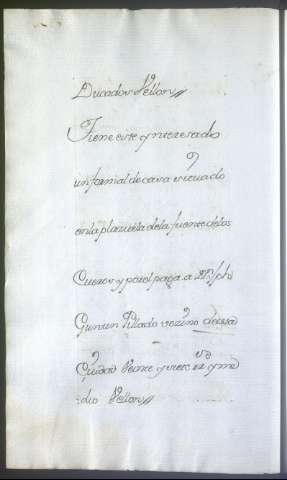 Ducados Vellon
Tiene este ynteresado
un formal de casa situado
en la plazuela de la fuente de los
Cueros y por el paga a Dn Jph
Guntin Pillado vezino de esta
Ciudad Veinte y siete rs y me
dio Vellon